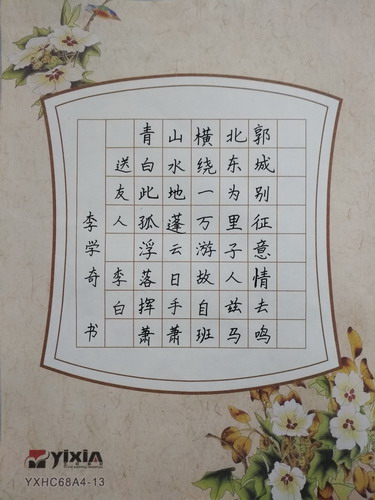 送友人 李白
青山横北郭
白水绕东城
此地一为别
孤蓬万里征
浮云游子意
落日故人情
挥手自兹去
萧萧班马鸣
李学奇 书
yixin
YXHC68A4-13